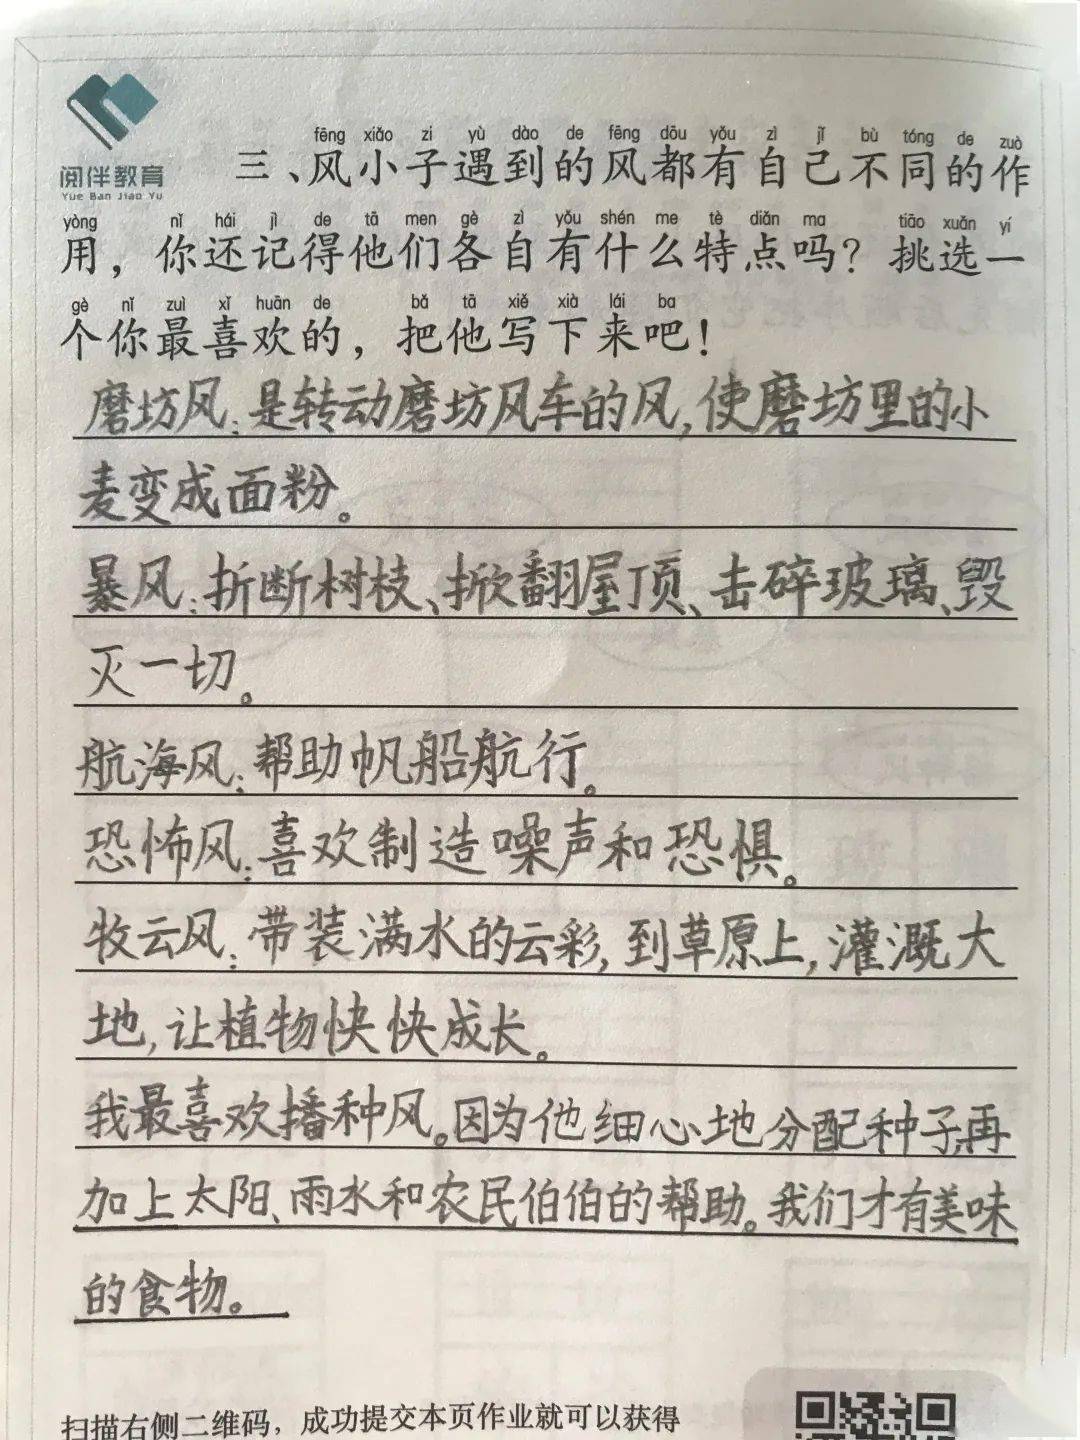 阅伴教育
Yue Ban Jiao Yu
fēng xiǎo zi yù dào de fēng dōu yǒu zì jǐ bù tóng de zuò
三、风小子遇到的风都有自己不同的作
yòng nǐ hái jì de tā men gè zì yǒu shén me tè diǎn ma tiāo xuǎn yí
用，你还记得他们各自有什么特点吗？挑选一
gè nǐ zuì xǐ huān de bǎ tā xiě xià lái ba
个你最喜欢的，把他写下来吧！
磨坊风：是转动磨坊风车的风，使磨坊里的小
麦变成面粉。
暴风：折断树枝、掀翻屋顶、击碎玻璃、毁
灭一切。
航海风：帮助帆船航行。
恐怖风：喜欢制造噪声和恐惧。
牧云风：带装满水的云彩，到草原上，灌溉大
地，让植物快快成长。
我最喜欢播种风。因为他细心地分配种子，再
加上太阳、雨水和农民伯伯的帮助。我们才有美味
的食物。
扫描右侧二维码，成功提交本页作业就可以获得